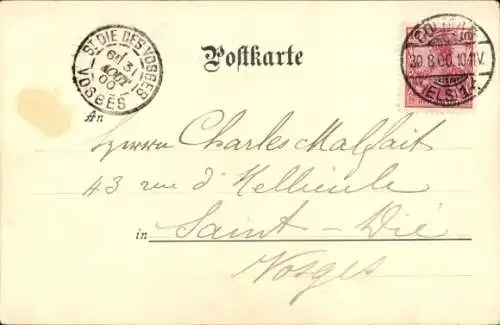 Postkarte
ST DIE DES VOSGES
6E 31
AOUT
00
VOSGES
COLMAR
30.8.00.10-11V.
(ELS.) 1.
An
Herrn Charles Malfait
43 rue d'Hellieule
in Saint-Dié
Vosges